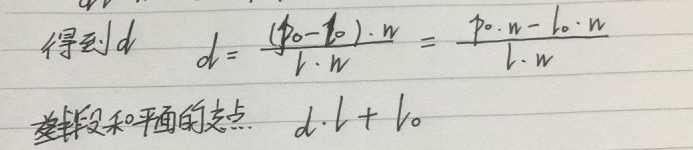 得到d d = (p₀-l₀)·n / l·n = p₀·n - l₀·n / l·n
线段和平面的交点 d·l + l₀